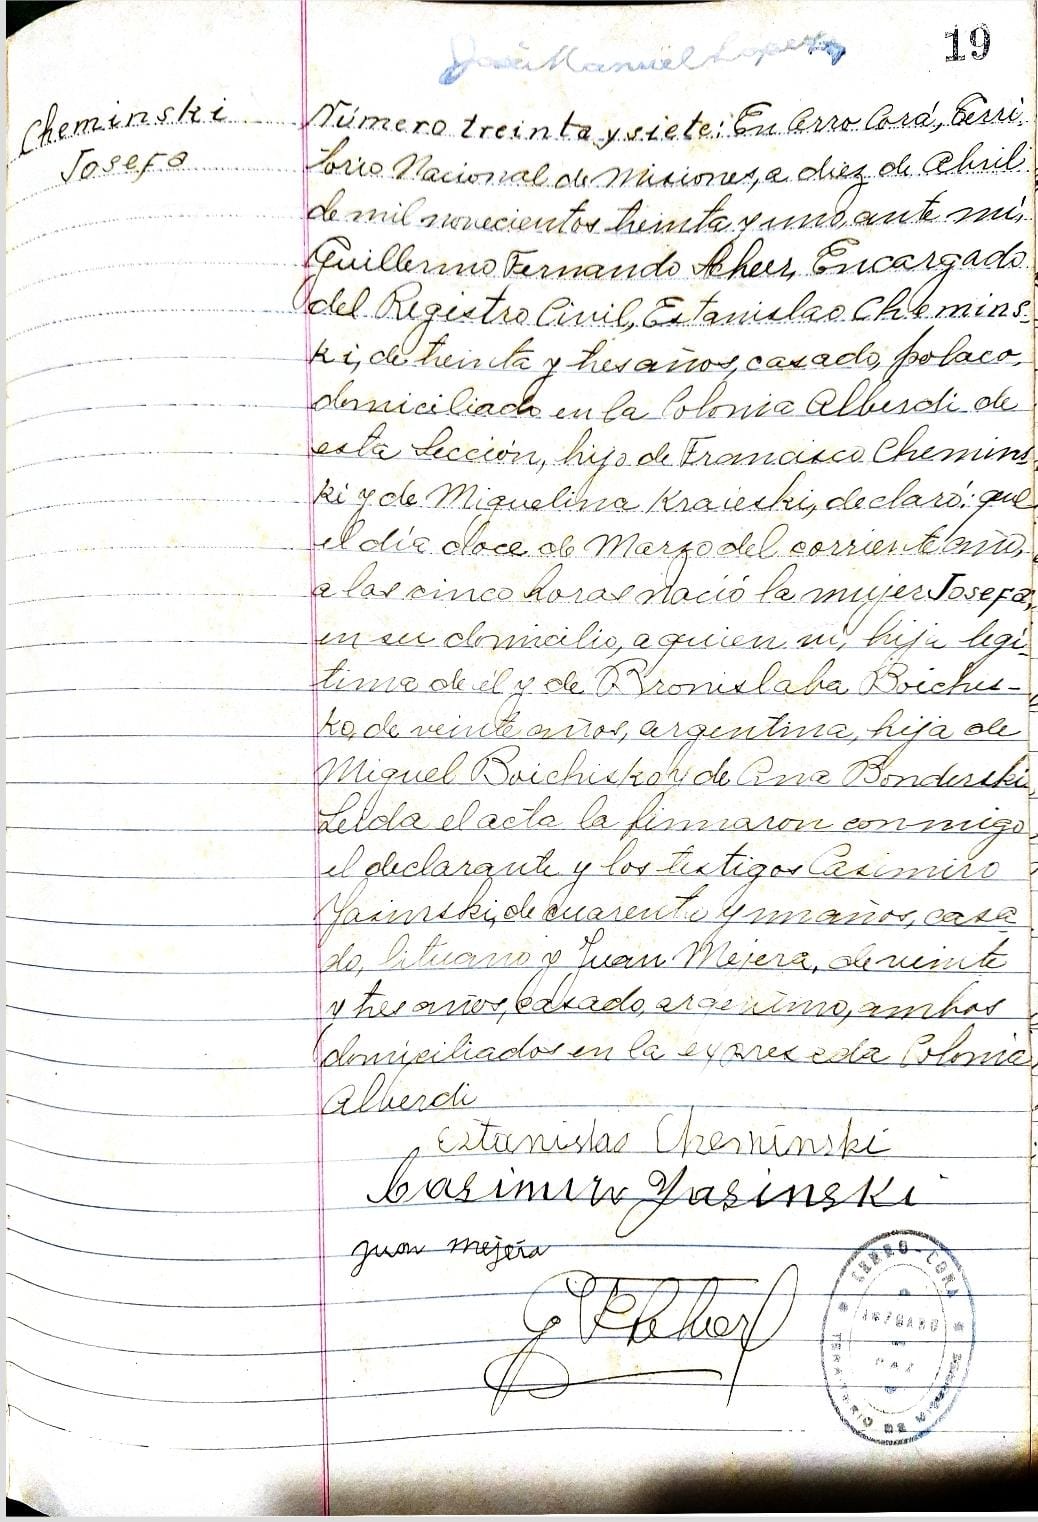 19
José Manuel Lopez
Cheminski
Josefa
Número treinta y siete: En Cerro Corá, Terri-
torio Nacional de Misiones, a diez de Abril
de mil novecientos treinta y uno, ante mí,
Guillermo Fernando Scheer, Encargado
del Registro Civil, Estanislao Chemins-
ki, de treinta y tres años, casado, polaco,
domiciliado en la Colonia Alberdi de
esta Sección, hijo de Francisco Chemins
ki y de Miguelina Kraieski, declaró: que
el día doce de Marzo del corriente año,
a las cinco horas nació la mujer Josefa,
en su domicilio, a quien vi, hija legí-
tima de él y de Bronislaba Boichis-
ko, de veinte años, argentina, hija de
Miguel Boichisko y de Ana Bonderski.
Leída el acta la firmaron conmigo
el declarante y los testigos Casimiro
Yasinski, de cuarenta y un años, casa
do, lituano y Juan Mejera, de veinte
y tres años, casado, argentino, ambos
domiciliados en la expresada Colonia
Alberdi
Estanislao Cheminski
Casimiro Yasinski
Juan Mejera
G F Scheer
CERRO-CORA
JUZGADO
DE
PAZ